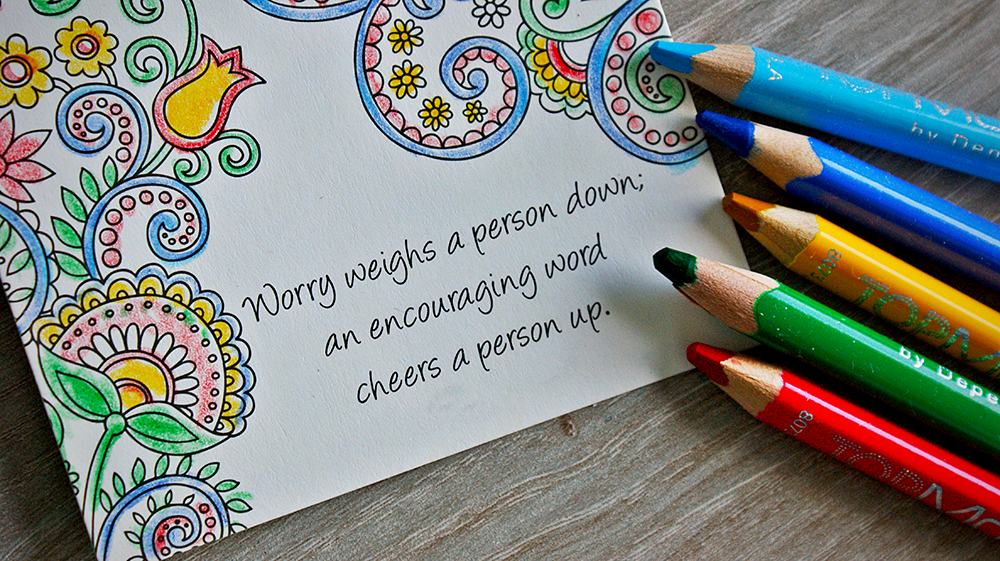 Worry weighs a person down;
an encouraging word
cheers a person up.
by Depe
807
TOPM
by Depe
807
TOPMO